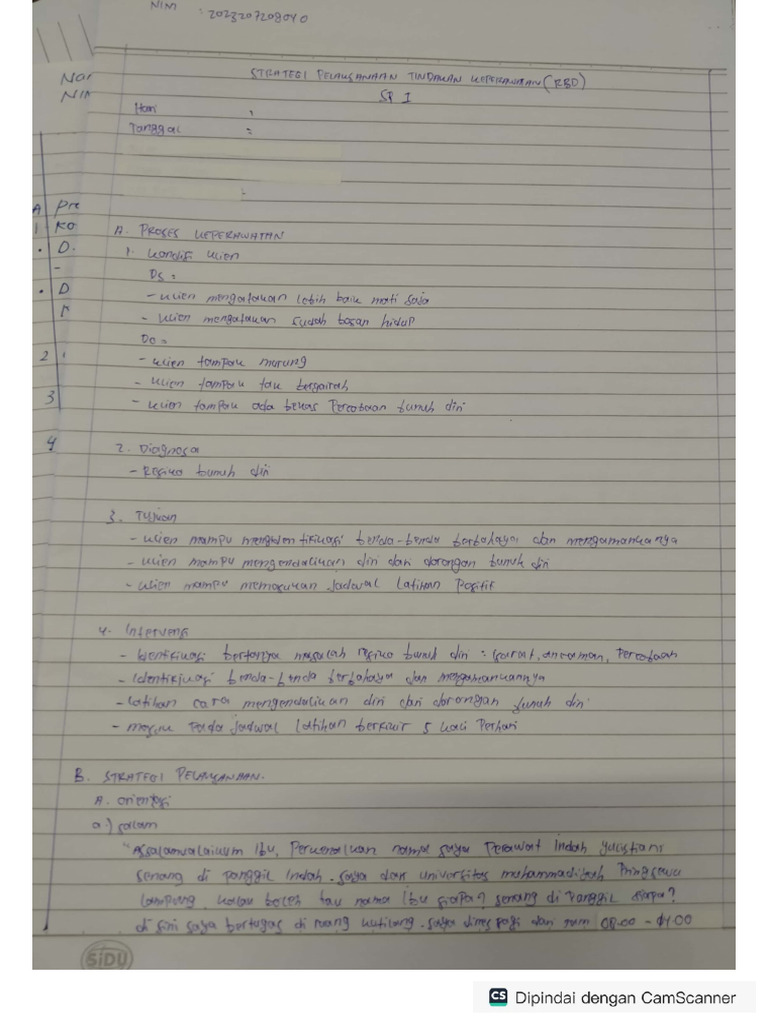 NIM : 2023207209040
STRATEGI PELAKSANAAN TINDAKAN KEPERAWATAN (RBD)
SP I
NIM
Hari :
Tanggal :
A Pre
1 KO
A. PROSES KEPERAWATAN
• D.
1. Kondisi klien
-
DS :
• D
- klien mengatakan lebih baik mati saja
- klien mengatakan sudah bosan hidup
DO :
2
- klien tampak murung
- klien tampak tak bergairah
3
- klien tampak ada bekas Percobaan bunuh diri
4
2. Diagnosa
- Resiko bunuh diri
3. Tujuan
- klien mampu mengidentifikasi benda-benda berbahaya dan mengamankanya
- klien mampu mengendalikan diri dari dorongan bunuh diri
- klien mampu memasukan Jadwal Latihan Positif
4. Intervensi
- Identifikasi beratnya masalah resiko bunuh diri : isarat, ancaman, Percobaan
- Identifikasi benda-benda berbahaya dan mengamankannya
- latihan cara mengendalikan diri dari dorongan bunuh diri
- masuk Pada Jadwal Latihan berfikir 5 kali Perhari
B. STRATEGI PELAKSANAAN.
A. orientasi
a.) salam
"Assalamualaikum Ibu, Perkenalkan nama saya Perawat Indah yulistiani
senang di panggil Indah. saya dari universitas muhammadiyah Pringsewu
lampung. kalau boleh tau nama Ibu siapa? senang di Panggil siapa?
di sini saya bertugas di ruang kutilang. saya dines pagi dari jam 08.00 - 14.00
SiDU
CS Dipindai dengan CamScanner